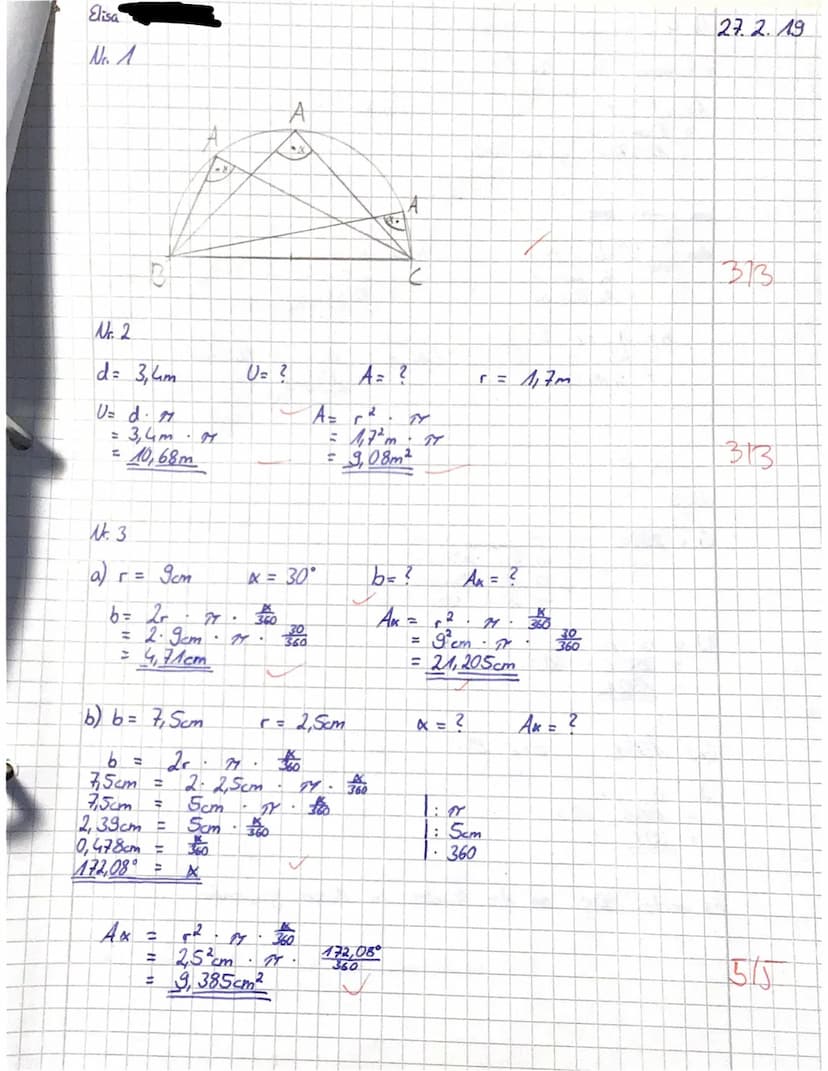 Elisa
27.2.19
Nr. 1
A
A
A
α
α
α
B
C
3/3
Nr. 2
d = 3,4m U = ? A = ? r = 1,7m
U = d · π A = r² · π
= 3,4m · π = 1,7²m · π
= 10,68m = 9,08m²
3/3
Nr. 3
a) r = 9cm α = 30° b = ? Aα = ?
b = 2r · π · α/360 Aα = r² · π · α/360
= 2 · 9cm · π · 30/360 = 9²cm · π · 30/360
= 4,71cm = 21,205cm
b) b = 7,5cm r = 2,5cm α = ? Aα = ?
b = 2r · π · α/360
7,5cm = 2 · 2,5cm · π · α/360
7,5cm = 5cm · π · α/360 | : π
2,39cm = 5cm · α/360 | : 5cm
0,478cm = α/360 | · 360
172,08° = α
Aα = r² · π · α/360
= 2,5²cm · π · 172,08°/360
= 9,385cm²
5/5